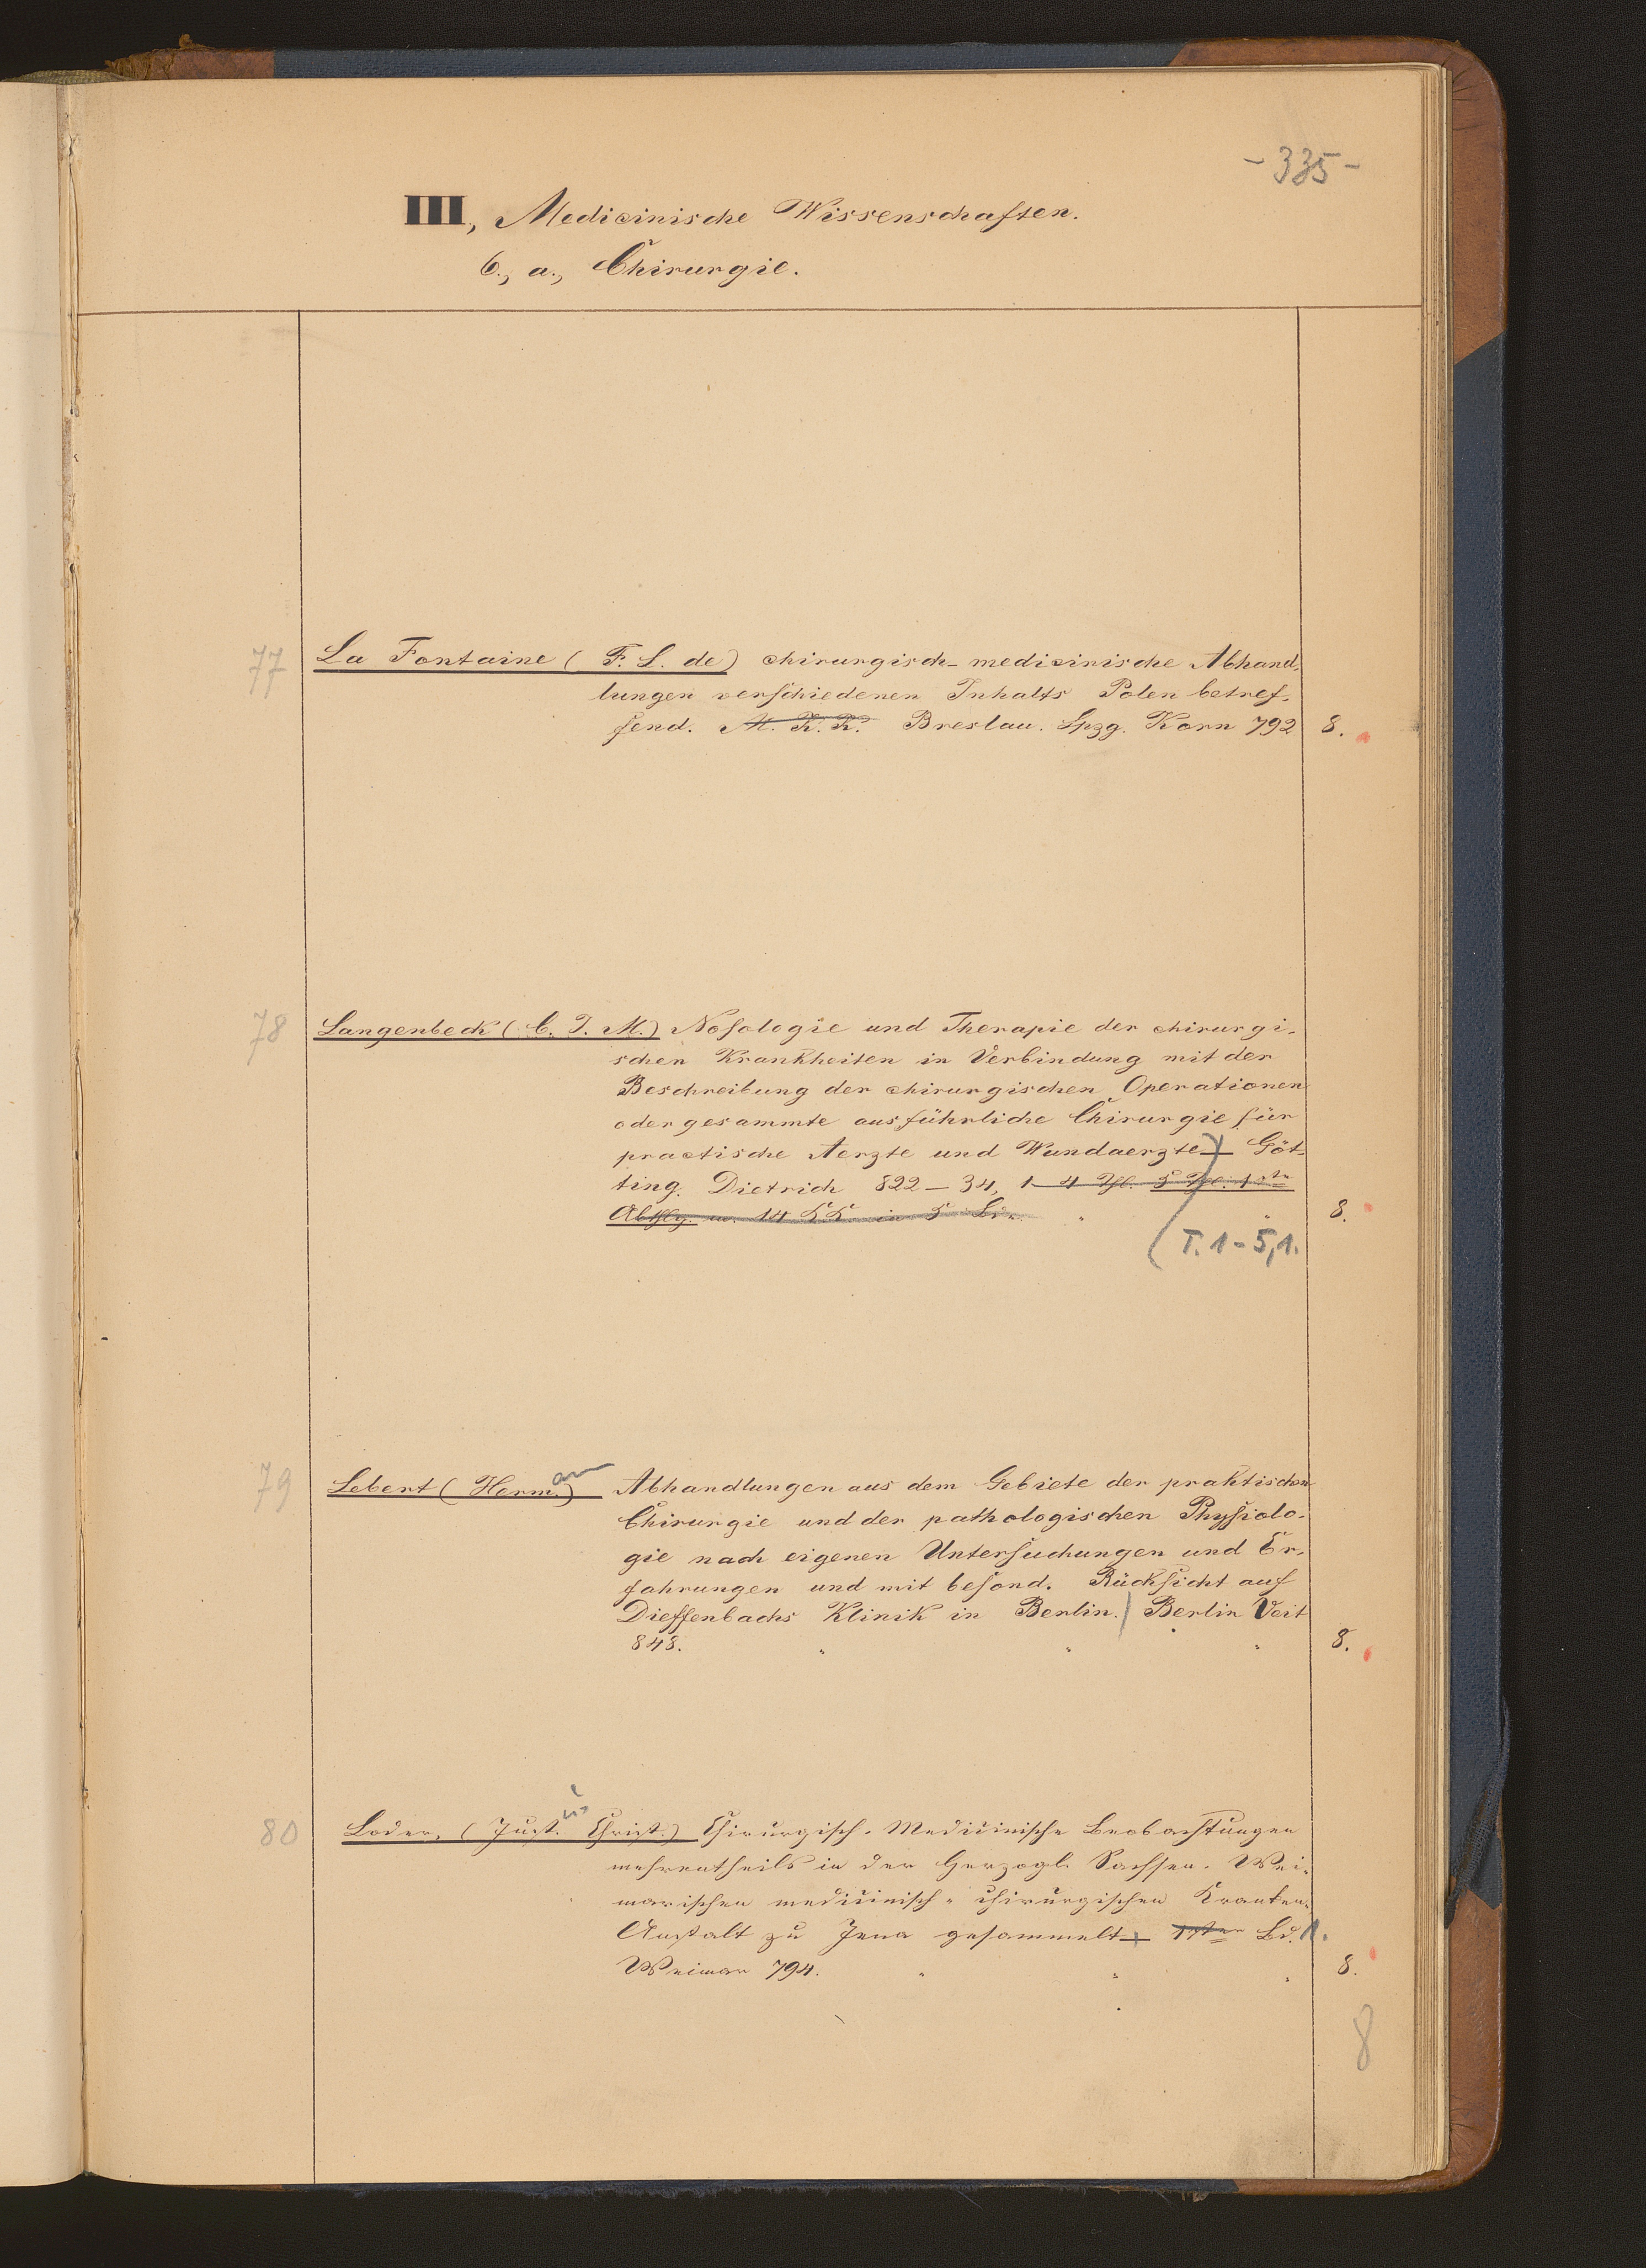 - 335 -
III, Medicinische Wissenschaften.
6., a., Chirurgie.
77 La Fontaine ( F. L. de) chirurgisch- medicinische Abhand-
lungen verschiedenen Inhalts Polen betref-
fend. M. K. K. Breslau. Lpzg. Korn 792 8.
78 Langenbeck ( C. J. M.) Nosologie und Therapie der chirurgi-
schen Krankheiten in Verbindung mit der
Beschreibung der chirurgischen Operationen
oder gesammte ausführliche Chirurgie für
practische Aerzte und Wundaerzte Göt-
ting. Dietrich 822 - 34, 1 - 4 Thl. 5 Thl. 1ste
Abthlg. m. 14 KK. in 5 Bdn. 8.
( T. 1 - 5,1.
79 Lebert ( Hermann) Abhandlungen aus dem Gebiete der praktischen
Chirurgie und der pathologischen Physiolo-
gie nach eigenen Untersuchungen und Er-
fahrungen und mit besond. Rücksicht auf
Dieffenbachs Klinik in Berlin. Berlin Veit
848. " " " 8.
80 Loder, ( Just. us Christ.) Chirurgisch- Medicinische Beobachtungen
mehrentheils in der Herzogl. Sachsen- Wei-
marischen medicinisch- chirurgischen Kranken-
Anstalt zu Jena gesammelt 1ster Bd. 1.
Weimar 794. " " " 8.
8